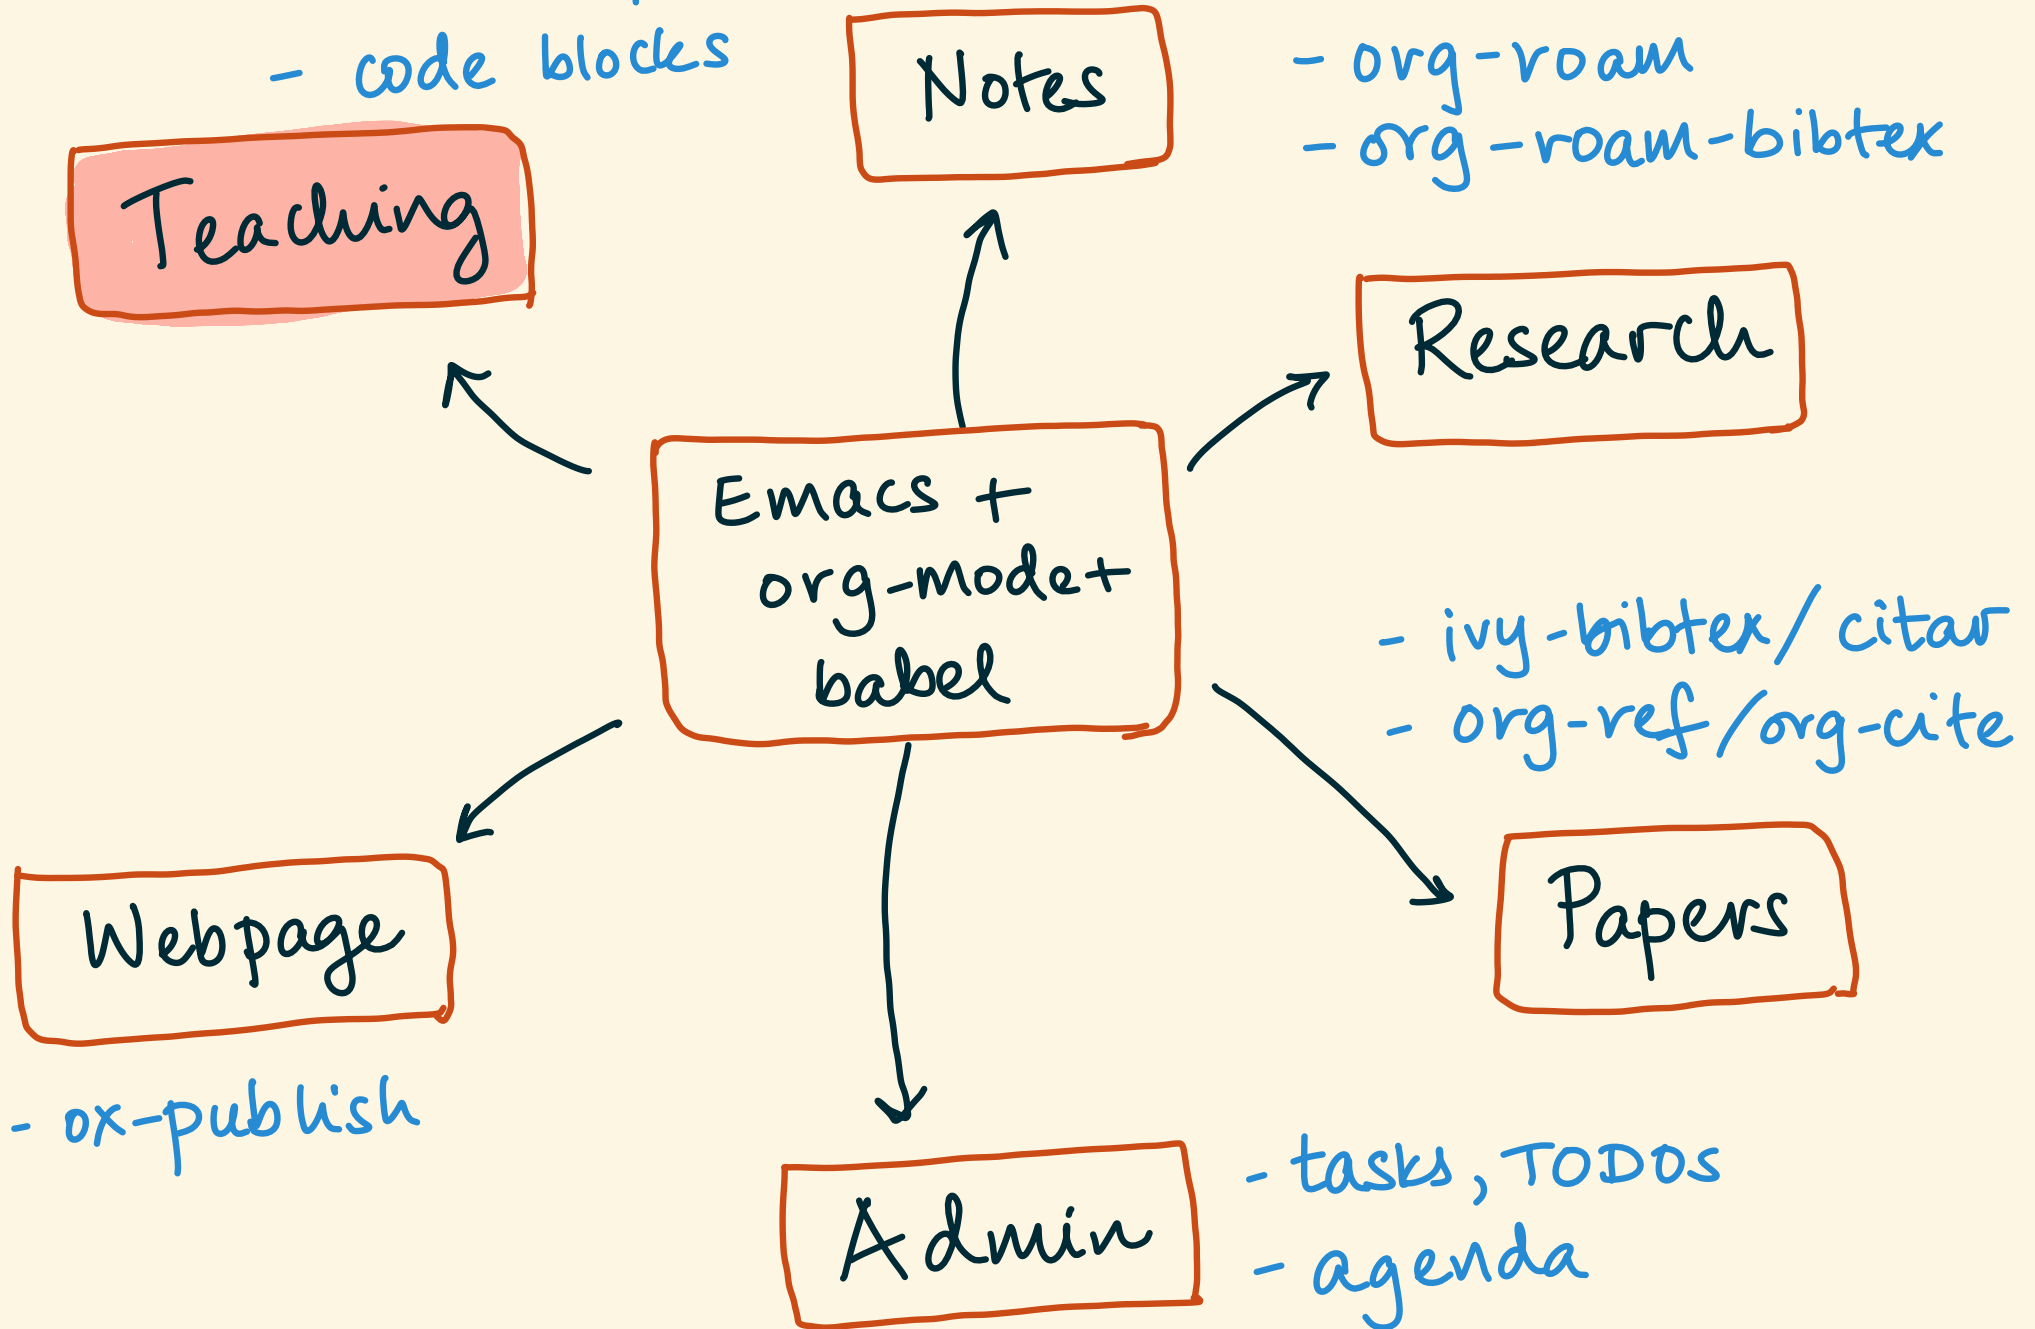 - code blocks
Teaching
Notes
- org-roam
- org-roam-bibtex
Research
Emacs +
org-mode+
babel
- ivy-bibtex/citar
- org-ref/org-cite
Papers
Webpage
- ox-publish
Admin
- tasks, TODOs
- agenda